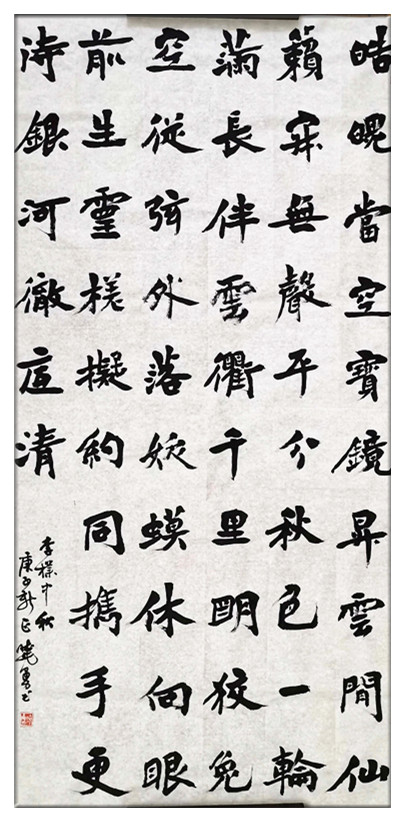 皓魄當空寶鏡昇雲間仙
籟寂無聲平分秋色一輪
滿長伴雲衢千里明狡兔
空從弦外落妖蟆休向眼
前生靈槎擬約同携手更
待銀河徹底清
李樸中秋
庚子新正曉勇书